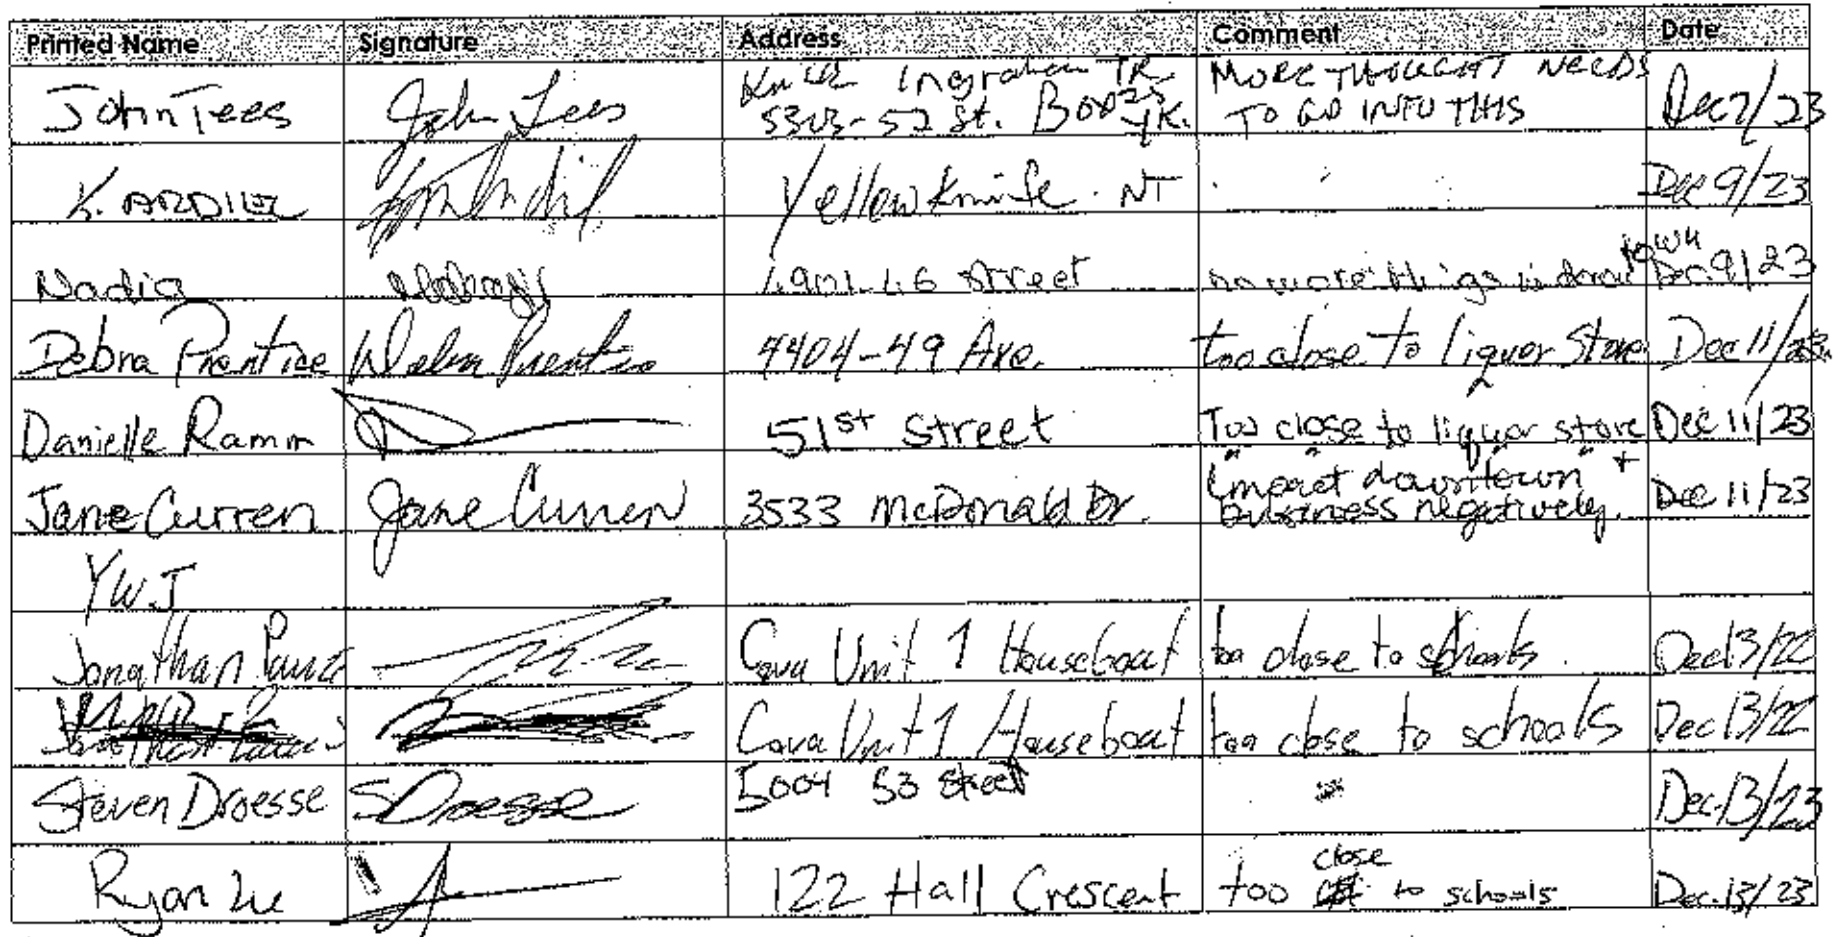 Printed Name Signature Address Comment Date
John Tees John Tees Ingraham TR MORE THOUGHT NEEDS Dec 7/23
5303-52 St. Box YK. TO GO INTO THIS
K. ARDILL Yellowknife. NT Dec 9/23
Nadia 4901-46 street no more things in down town Dec 9/23
Debra Prentice Debra Prentice 4404-49 Ave. too close to liquor Store Dec 11/23
Danielle Ramm 51st Street Too close to liquor store Dec 11/23
Jane Curren Jane Curren 3533 McDonald Dr. " " " " + Dec 11/23
impact downtown
business negatively.
YWJ
Jonathan Cova Unit 1 Houseboat too close to schools. Dec 13/22
Cova Unit 1 Houseboat too close to schools Dec 13/22
Steven Droesse SDroesse 5004 53 street Dec. 13/23
Ryan 122 Hall Crescent too close to schools Dec. 13/23